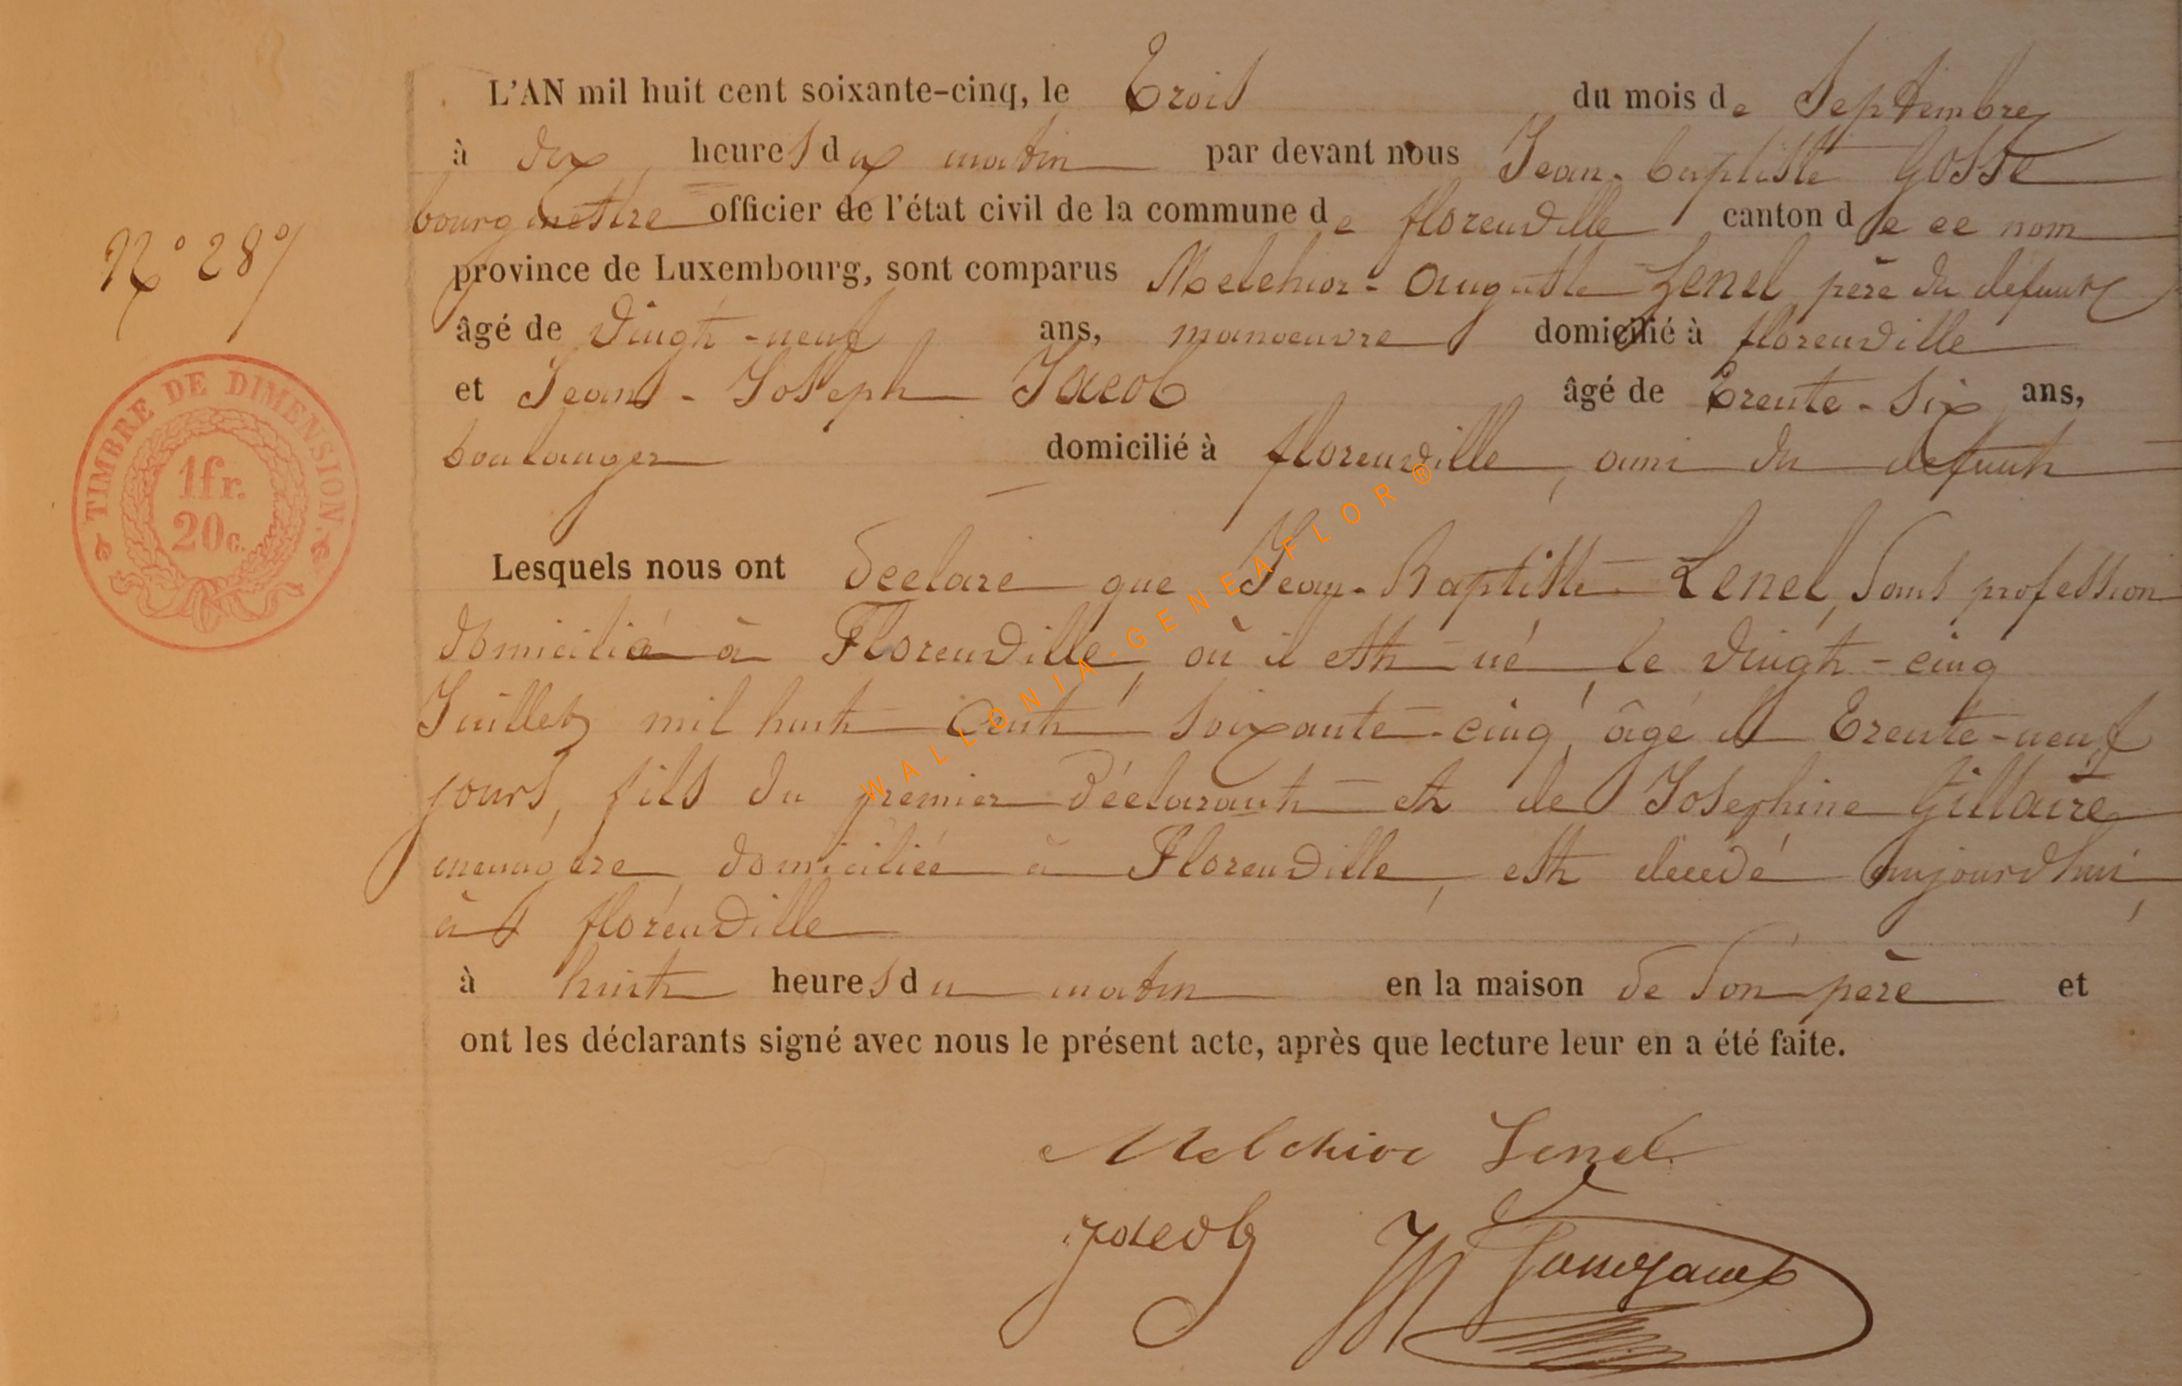 L'AN mil huit cent soixante-cinq, le Trois du mois de Septembre
à dix heures du matin par devant nous Jean-baptiste Gosse
bourgmestre officier de l'état civil de la commune de florenville canton de ce nom
N° 28
province de Luxembourg, sont comparus Melchior-Auguste Lenel, père du défunt
âgé de vingt-neuf ans, manoeuvre domicilié à florenville
et Jean-Joseph Jacob âgé de trente-six ans,
boulanger domicilié à florenville, ami du defunt
TIMBRE DE DIMENSION.
1fr.
20c.
Lesquels nous ont declaré que Jean-Baptiste Lenel, sans profession
domicilié à Florenville, où il est né le vingt-cinq
Juillet mil huit cent soixante-cinq, âgé de Trente-neuf
jours, fils du premier déclarant et de Josephine Gillaire
menagère domiciliée à Florenville, est decedé aujourdhui,
à florenville
à huit heures du matin en la maison de son père et
ont les déclarants signé avec nous le présent acte, après que lecture leur en a été faite.
Melchior Lenel
Jacob
WALLONIA-GENEAFLOR®